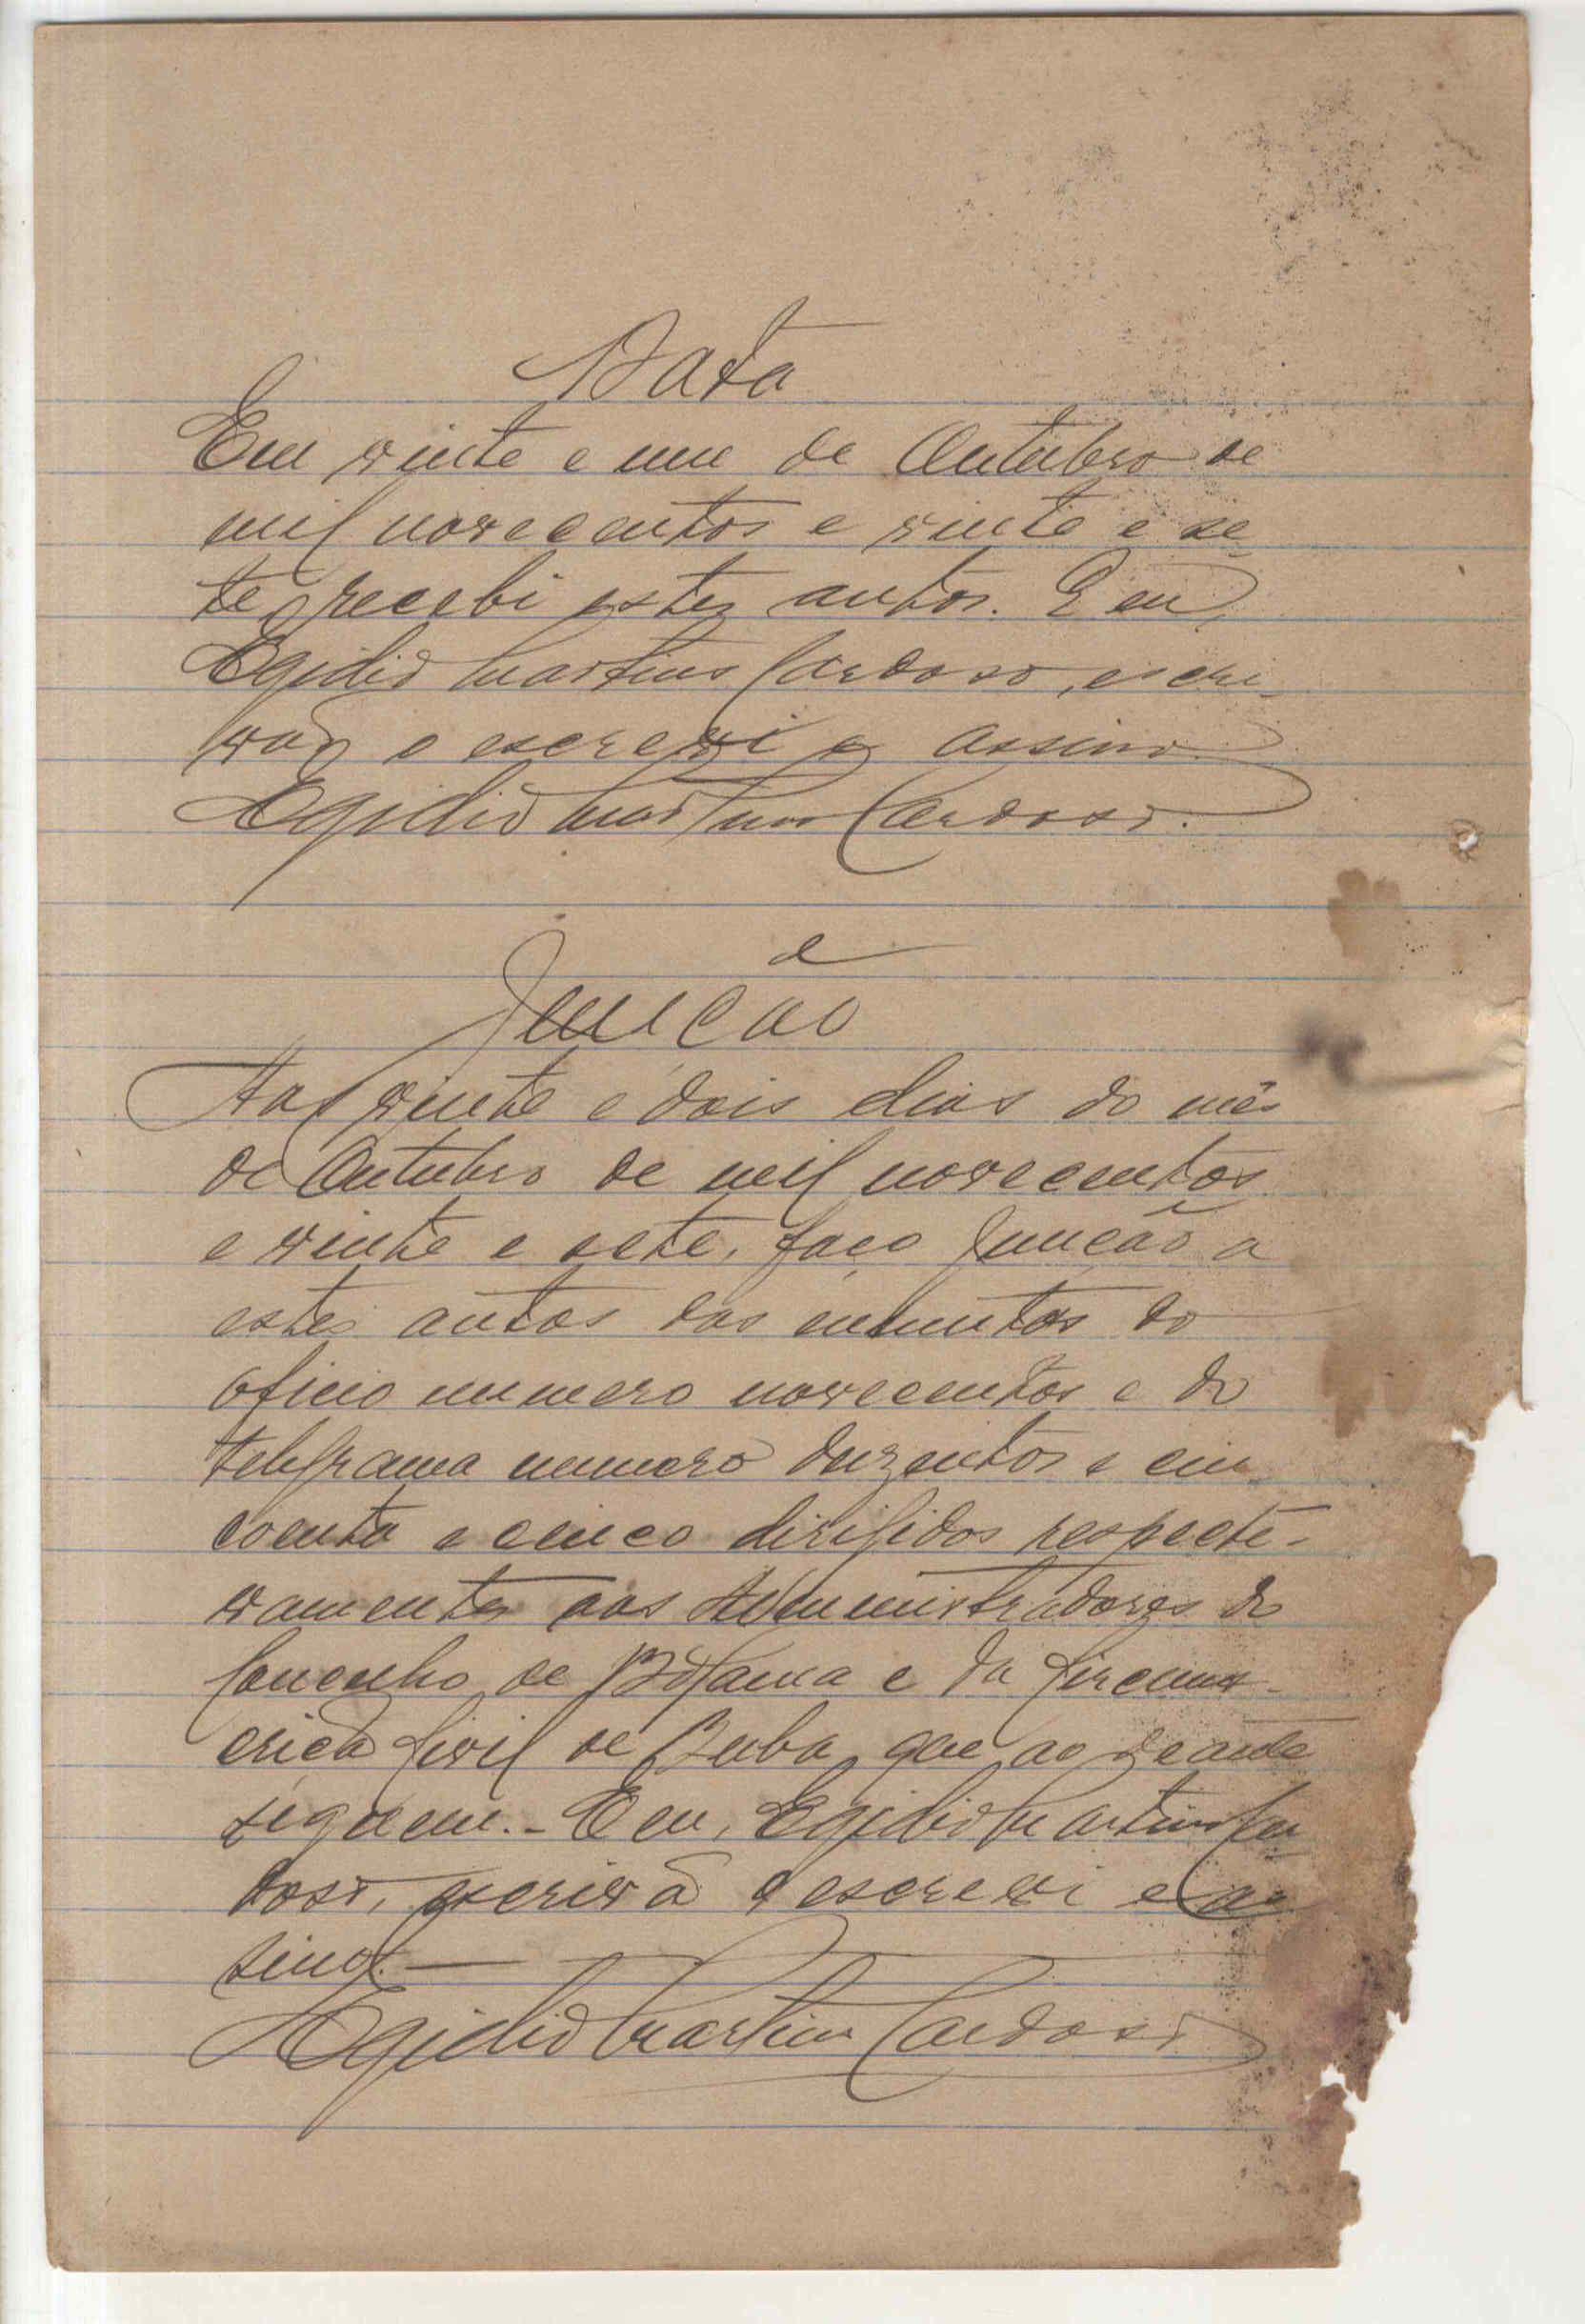 Data
Em vinte e um de Outubro de
mil novecentos e vinte e se-
te, recebi estes autos. E eu,
Egidio Martins Cardoso, escri-
vão o escrevi e assino.
Egidio Martins Cardoso.
Junção
Aos vinte e dois dias do mês
de Outubro de mil novecentos
e vinte e sete, faço Junção a
estes autos das minutas do
oficio numero novecentos e do
telegrama numero duzentos e cin-
coenta e cinco dirigidos respecti-
vamente aos Administradores do
Concelho de Bolama e da Circuns-
crição Civil de Buba, que ao deante
seguem.- E eu, Egidio Martins Car
doso, escrivã o escrevi e as
sino.—
Egidio Martins Cardoso